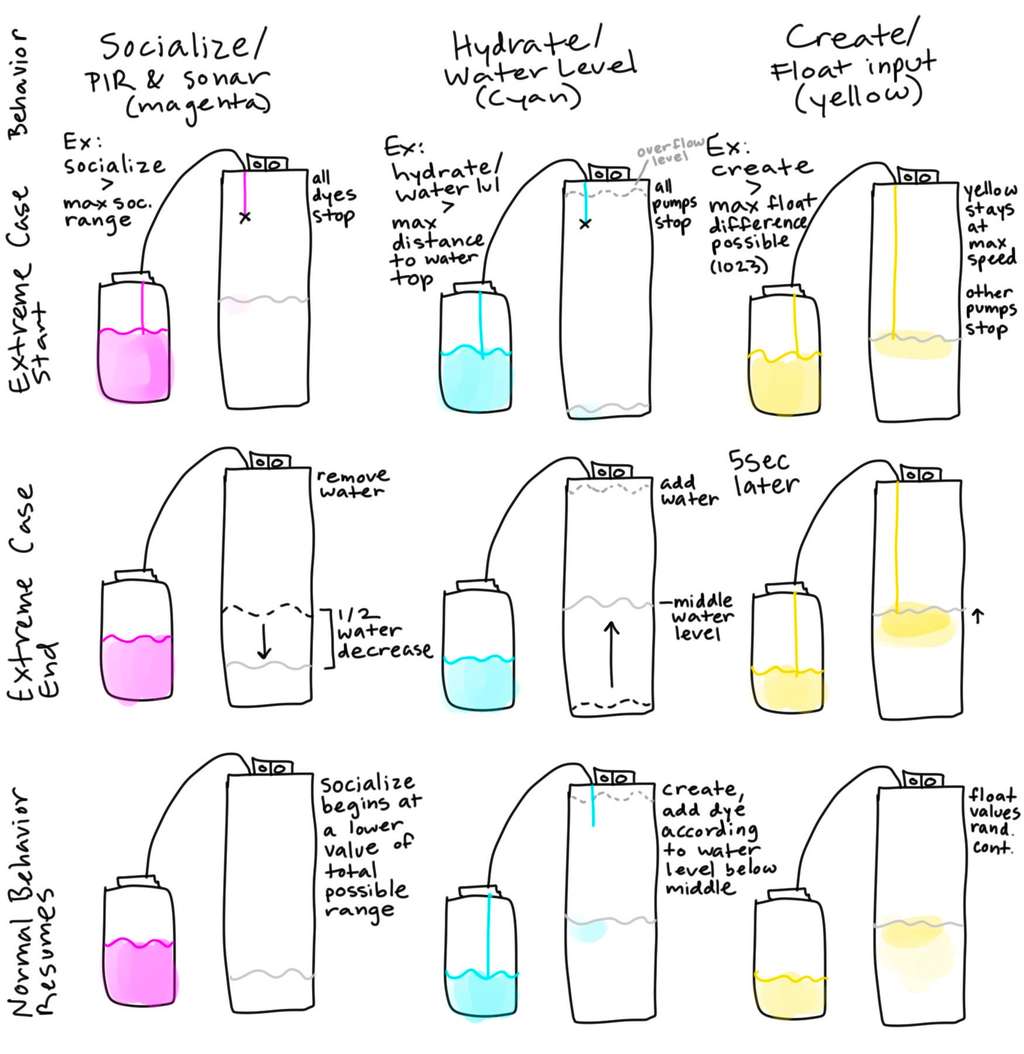 Behavior
Socialize/
PIR & sonar
(magenta)
Hydrate/
Water Level
(Cyan)
Create/
Float input
(yellow)
Extreme Case
Start
Ex:
socialize
>
max soc.
range
all
dyes
stop
Ex:
hydrate/
water lvl
>
max
distance
to water
top
overflow
level
all
pumps
stop
Ex:
create
>
max float
difference
possible
(1023)
yellow
stays
at
max
speed
other
pumps
stop
Extreme Case
End
remove
water
1/2
water
decrease
add
water
-middle
water
level
5sec
later
Normal Behavior
Resumes
socialize
begins at
a lower
value of
total
possible
range
create,
add dye
according
to water
level below
middle
float
values
rand.
cont.